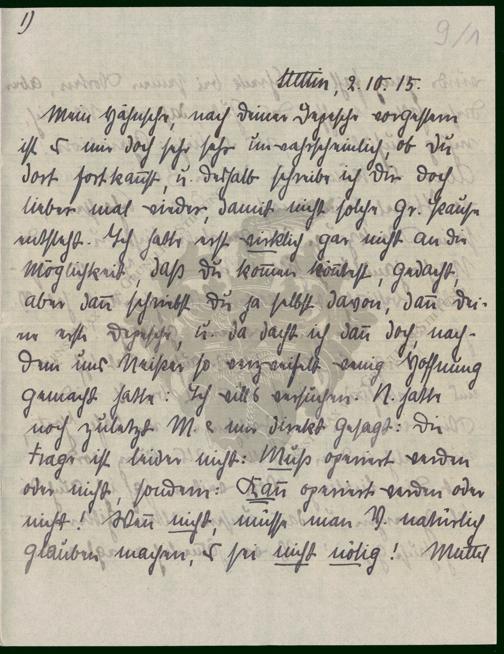 1)
9/1
Stettin, 2.10.15.
Mein Hähnsche, nach deiner Depesche vorgestern
ist es mir doch sehr sehr unwahrscheinlich, ob du
dort fortkannst, u. deshalb schreibe ich dir doch
lieber mal wieder, damit nicht solche gr. Pause
entsteht. Ich hatte erst wirklich gar nicht an die
Möglichkeit, daß du kommen könntest, gedacht,
aber dann schriebst du ja selbst davon, dann dei-
ne erste Depesche, u. da dacht ich dann doch, nach-
dem uns Neißer so verzweifelt wenig Hoffnung
gemacht hatte: Ich will's versuchen. N. hatte
noch zuletzt M. & mir direkt gesagt: die
Frage ist leider nicht: Muß operiert werden
oder nicht, sondern: Kann operiert werden oder
nicht! Wenn nicht, müsse man V. natürlich
glauben machen, es sei nicht nötig! Muttel